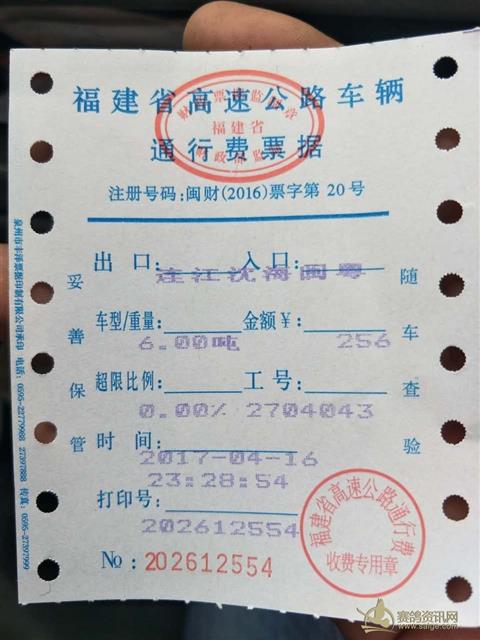 福建省高速公路车辆
财政票据监制章
福建省
财政部监制
通行费票据
注册号码:闽财(2016)票字第 20号
出口: 入口:
连江沈海闽粤
车型/重量: 金额¥:
6.00吨 256
超限比例: 工号:
0.00% 2704043
时间:
2017-04-16
23:28:54
打印号:
202612554
№: 202612554
福建省高速公路通行费
收费专用章
妥善保管
随车查验
泉州市丰泽票据印制有限公司承印 电话: 0595-22779988 27397888 传真: 0595-27397999
赛鸽资讯网
www.saige.com